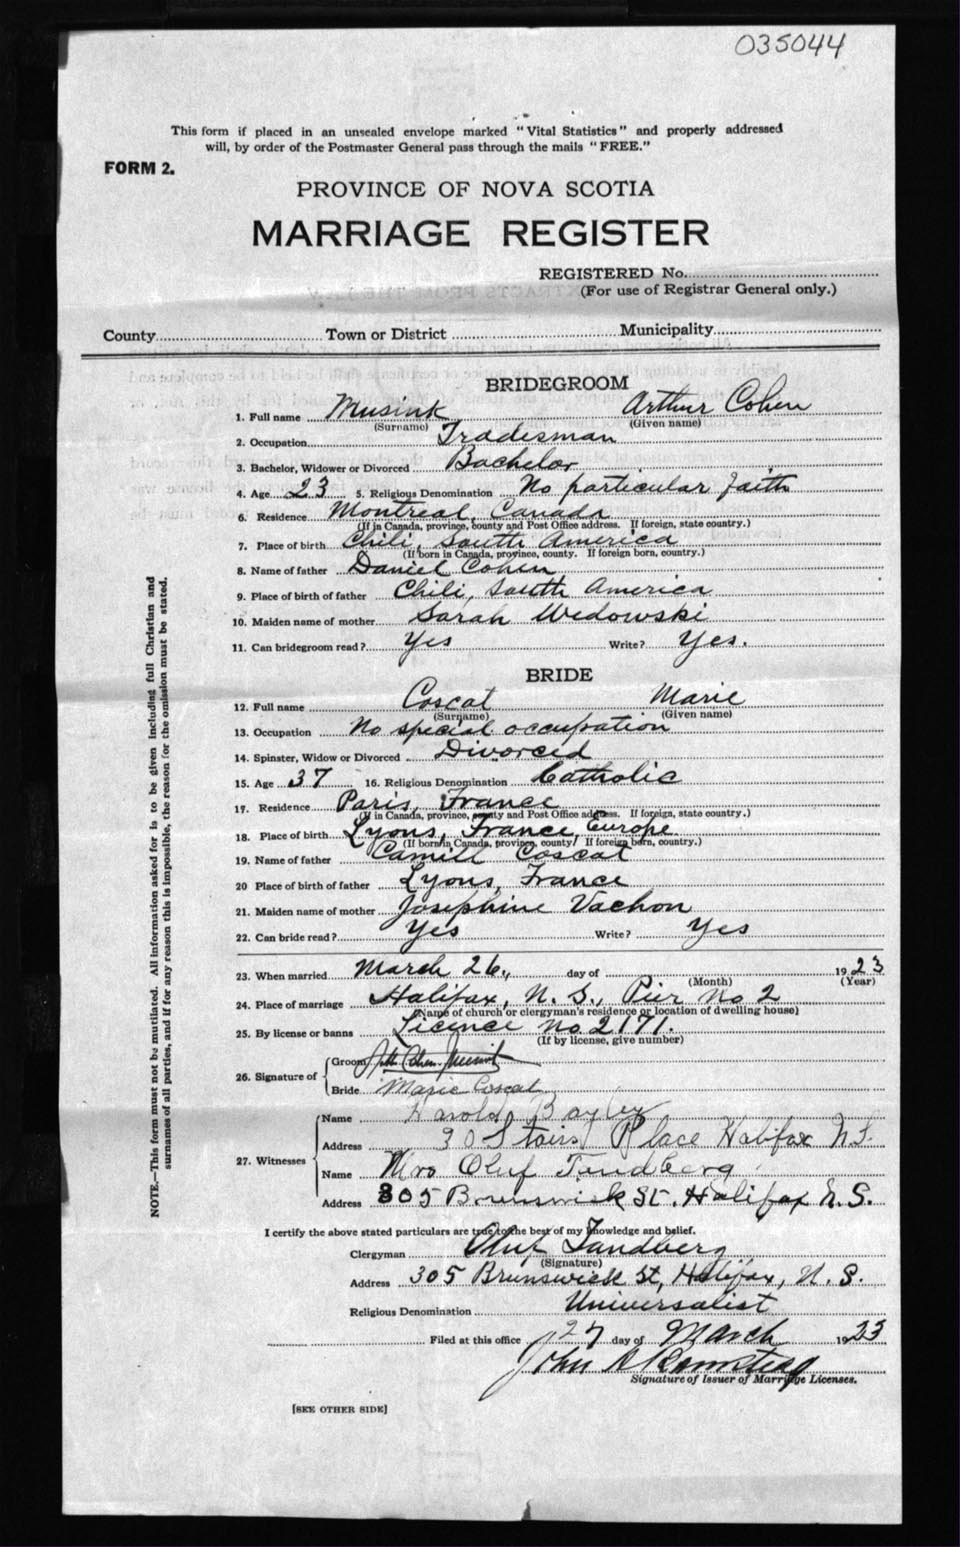 035044
This form if placed in an unsealed envelope marked "Vital Statistics" and properly addressed
will, by order of the Postmaster General pass through the mails "FREE."
FORM 2.
PROVINCE OF NOVA SCOTIA
MARRIAGE REGISTER
REGISTERED No.
(For use of Registrar General only.)
County Town or District Municipality
BRIDEGROOM
1. Full name Musink Arthur Cohen
(Surname) (Given name)
2. Occupation Tradesman
3. Bachelor, Widower or Divorced Bachelor
4. Age 23 5. Religious Denomination No particular faith
6. Residence Montreal, Canada
(If in Canada, province, county and Post Office address. If foreign, state country.)
7. Place of birth Chili, South America
(If born in Canada, province, county. If foreign born, country.)
8. Name of father Daniel Cohen
9. Place of birth of father Chili, South America
10. Maiden name of mother Sarah Wedowski
11. Can bridegroom read? Yes Write? Yes.
BRIDE
12. Full name Coscat Marie
(Surname) (Given name)
13. Occupation No special occupation
14. Spinster, Widow or Divorced Divorced
15. Age 37 16. Religious Denomination Catholic
17. Residence Paris, France
(If in Canada, province, county and Post Office address. If foreign, state country.)
18. Place of birth Lyons, France, Europe
(If born in Canada, province, county. If foreign born, country.)
19. Name of father Camill Coscat
20 Place of birth of father Lyons, France
21. Maiden name of mother Josephine Vachon
22. Can bride read? Yes Write? Yes
23. When married March 26, day of 1923
(Month) (Year)
24. Place of marriage Halifax, N. S., Pier No 2
(Name of church or clergyman's residence or location of dwelling house)
25. By license or banns Licence no. 2171.
(If by license, give number)
26. Signature of
Groom
Bride Marie Coscat
27. Witnesses
Name Harold Bayley
Address 30 Stairs Place Halifax N.S.
Name Mrs Oluf Tandberg
Address 305 Brunswick St. Halifax N.S.
I certify the above stated particulars are true to the best of my knowledge and belief.
Clergyman Oluf Tandberg
(Signature)
Address 305 Brunswick St, Halifax, N. S.
Religious Denomination Universalist
Filed at this office 27 day of March 1923
John A
Signature of Issuer of Marriage Licenses.
[SEE OTHER SIDE]
NOTE.—This form must not be mutilated. All information asked for is to be given including full Christian and
surnames of all parties, and if for any reason this is impossible, the reason for the omission must be stated.